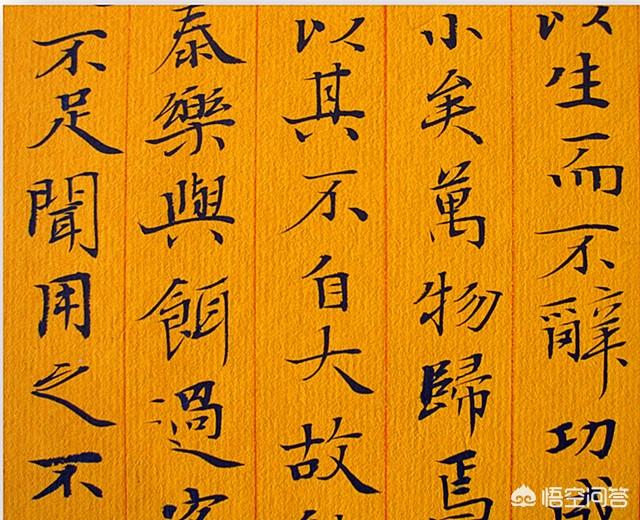 以生而不辭功成
小矣萬物歸焉
以其不自大故
泰樂與餌過客
不足聞用之不
悟空问答